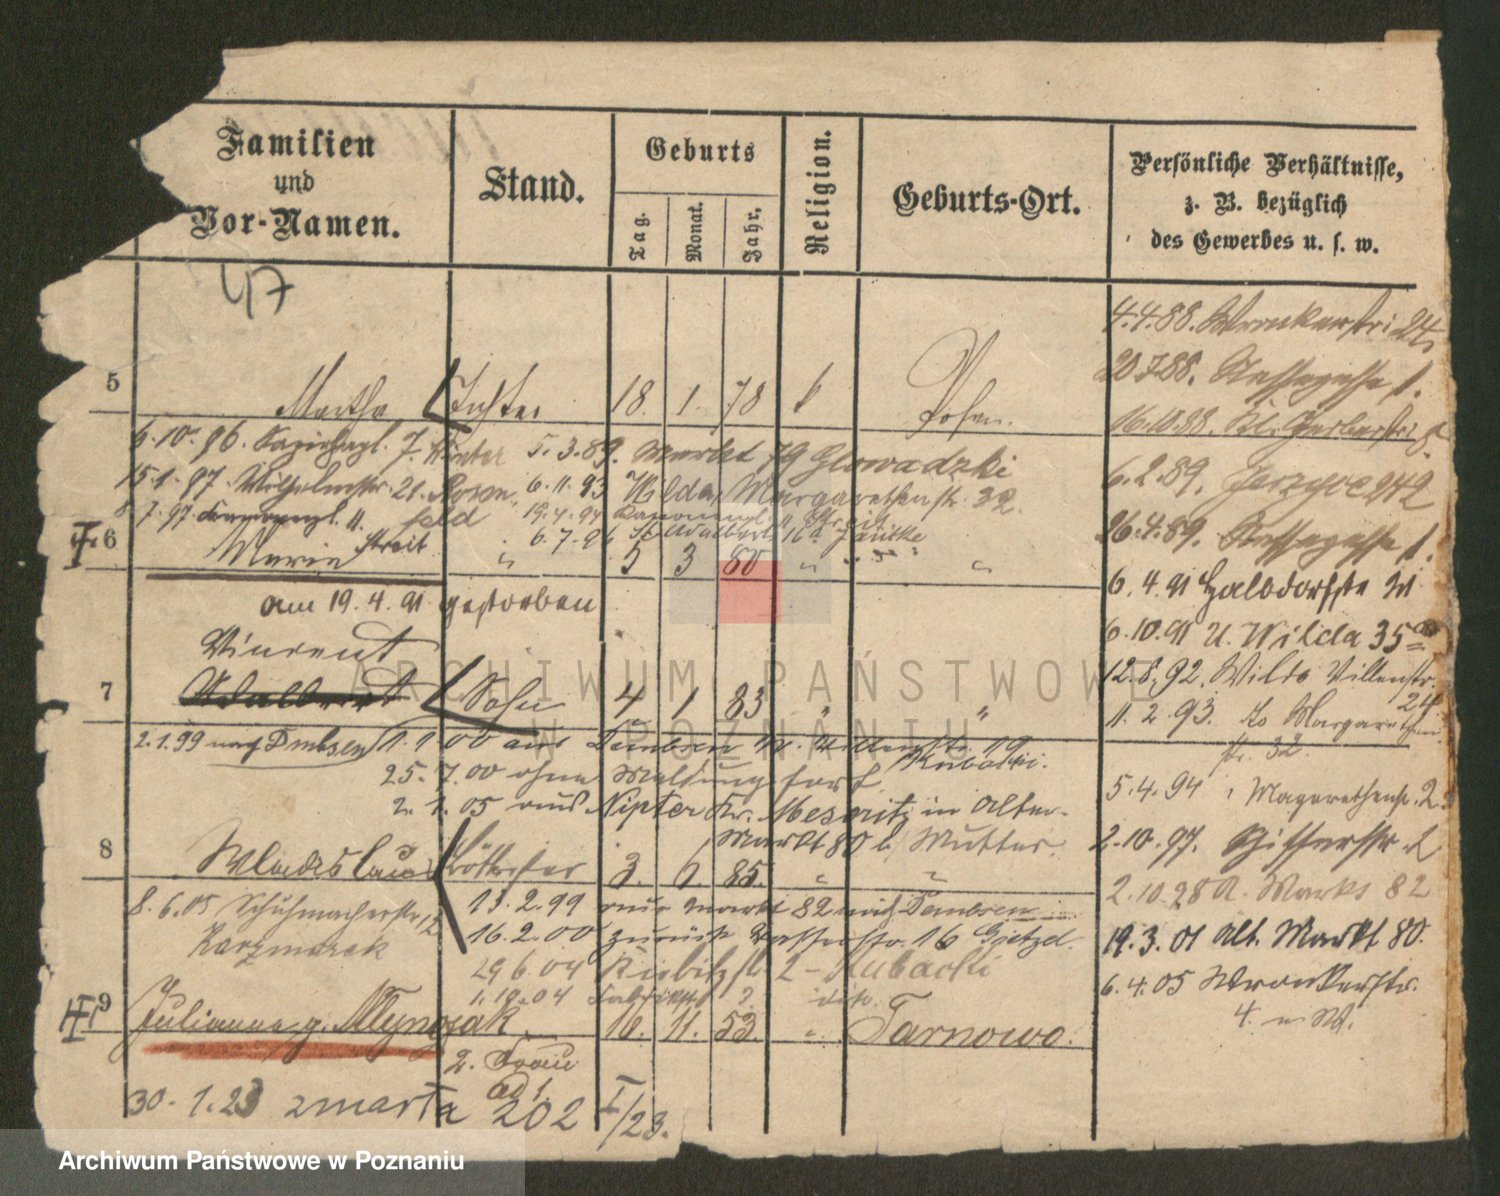 Familien
und
Vor-Namen.
Stand.
Geburts
Tag.
Monat.
Jahr.
Religion.
Geburts-Ort.
Persönliche Verhältnisse,
z. B. bezüglich
des Gewerbes u. s. w.
47
4.4.88. Wronkerstr. 24
20.7.88.
5 Martha Tochter 18. 1. 78 k Posen.
16.10.88. Kl. Gerberstr. 8
6.10.96. 7. Winter 5.3.89. Markt 79 Glowadzki
6.2.89. Jerzyce 242
15.1.97. Wilhelmstr. 21. 6.11.93 Wilda, Margarethenstr. 32.
8.7.97. 11. feld 19.4.94 Kanonenpl. 11 Streit
Streit 6.7.96 St. Adalbert 16a Jänicke
26.4.89.
6 Marie " 5 3 80 " " "
6.4.91 Halbdorfstr.
am 19.4.91 gestorben
6.10.91 U. Wilda 35
Vincent
12.8.92. Wilda Villenstr. 24
7 Adalbert Sohn 4 1 83 " "
11.2.93. Margarethen
str. 32
2.1.99 nach Dembsen 1.1.00 aus Dembsen 19
Kubacki.
25.7.00 ohne Meldung fort
5.4.94 Magarethenstr. 2
2.1.05 aus Nipter Kr. Meseritz in Alter-
Markt 80 b/ Mutter.
2.10.97. Schifferstr. 2
8 Wladislaus 3. 6. 85. " "
2.10.98 A. Markt 82
8.6.05 Schuhmacherstr. 12 13.2.99 aus Markt 82 nach Dembsen
Karzmarek 16.2.00 zurück 16
19.3.01 Alt. Markt 80.
29.6.04 2 - Kubacki
6.4.05 Wronkerstr.
4.
1.10.04 dito.
9 Julianna g. Mlynczak 10. 11. 53. " Tarnowo.
2. Frau
ad 1.
30.1.23 zmarła 202 I/23.
ARCHIWUM PAŃSTWOWE
W POZNANIU
Archiwum Państwowe w Poznaniu